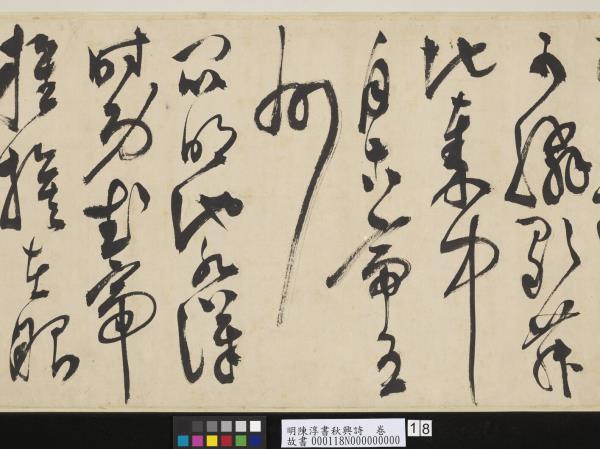 可憐歌舞
地秦中
自古帝王
州
昆明池水漢
時功武帝
旌旗在眼
明陳淳書秋興詩 卷
故書 000118N000000000
18